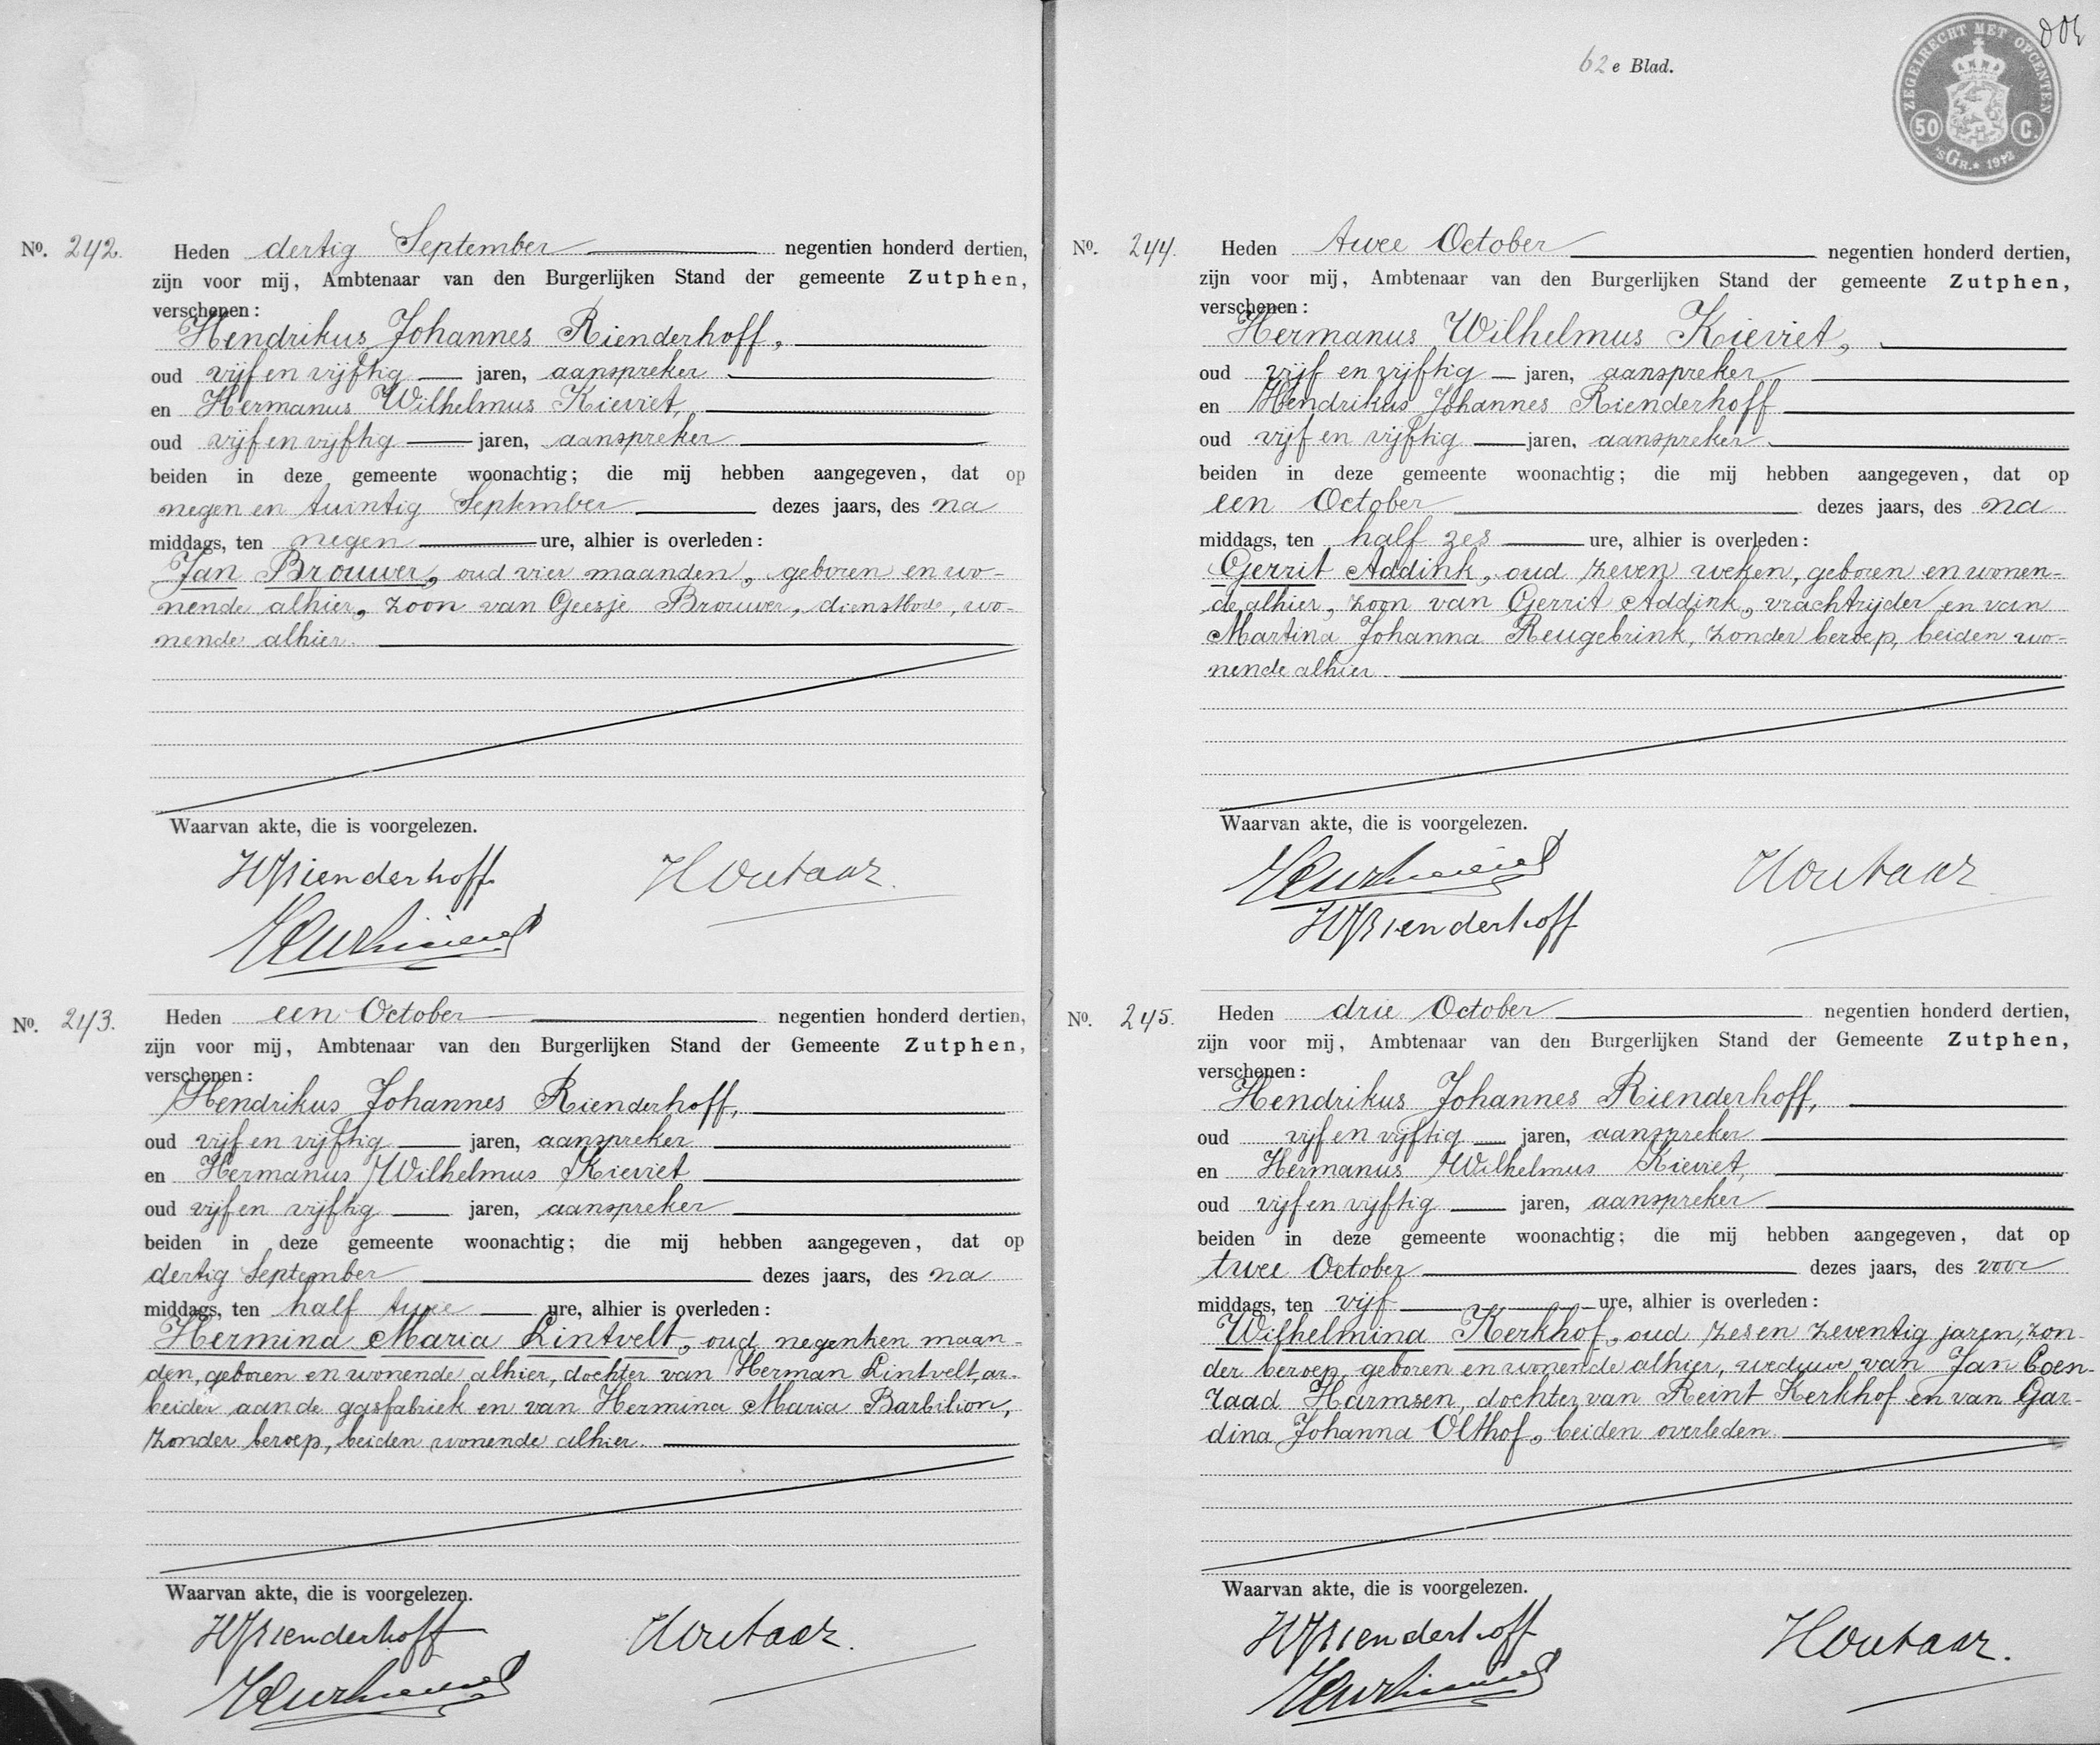 Nº. 242. Heden dertig September negentien honderd dertien,
zijn voor mij, Ambtenaar van den Burgerlijken Stand der gemeente Zutphen,
verschenen:
Hendrikus Johannes Rienderhoff,
oud vijf en vijftig jaren, aanspreker
en Hermanus Wilhelmus Kieviet,
oud vijf en vijftig jaren, aanspreker
beiden in deze gemeente woonachtig; die mij hebben aangegeven, dat op
negen en twintig September dezes jaars, des na
middags, ten negen ure, alhier is overleden:
Jan Brouwer, oud vier maanden, geboren en wo-
nende alhier, zoon van Geesje Brouwer, dienstbode, wo-
nende alhier.
Waarvan akte, die is voorgelezen.
HJRienderhoff
Houtaar
Nº. 243. Heden een October negentien honderd dertien,
zijn voor mij, Ambtenaar van den Burgerlijken Stand der Gemeente Zutphen,
verschenen:
Hendrikus Johannes Rienderhoff,
oud vijf en vijftig jaren, aanspreker
en Hermanus Wilhelmus Kieviet
oud vijf en vijftig jaren, aanspreker
beiden in deze gemeente woonachtig; die mij hebben aangegeven, dat op
dertig September dezes jaars, des na
middags, ten half twee ure, alhier is overleden:
Hermina Maria Lintvelt, oud negentien maan-
den, geboren en wonende alhier, dochter van Herman Lintvelt, ar-
beider aan de gasfabriek en van Hermina Maria Barbilion,
zonder beroep, beiden wonende alhier.
Waarvan akte, die is voorgelezen.
HJRienderhoff
Houtaar.
308
62e Blad.
ZEGELRECHT MET OPCENTEN
50 C.
'sGR. 1912
Nº. 244. Heden twee October negentien honderd dertien,
zijn voor mij, Ambtenaar van den Burgerlijken Stand der gemeente Zutphen,
verschenen:
Hermanus Wilhelmus Kieviet,
oud vijf en vijftig jaren, aanspreker
en Hendrikus Johannes Rienderhoff
oud vijf en vijftig jaren, aanspreker
beiden in deze gemeente woonachtig; die mij hebben aangegeven, dat op
een October dezes jaars, des na
middags, ten half zes ure, alhier is overleden:
Gerrit Addink, oud zeven weken, geboren en wonen-
de alhier, zoon van Gerrit Addink, vrachtrijder en van
Martina Johanna Reugebrink, zonder beroep, beiden wo-
nende alhier.
Waarvan akte, die is voorgelezen.
Houtaar
HJRienderhoff
Nº. 245. Heden drie October negentien honderd dertien,
zijn voor mij, Ambtenaar van den Burgerlijken Stand der Gemeente Zutphen,
verschenen:
Hendrikus Johannes Rienderhoff,
oud vijf en vijftig jaren, aanspreker
en Hermanus Wilhelmus Kieviet,
oud vijf en vijftig jaren, aanspreker
beiden in deze gemeente woonachtig; die mij hebben aangegeven, dat op
twee October dezes jaars, des voor
middags, ten vijf ure, alhier is overleden:
Wilhelmina Kerkhof, oud zes en zeventig jaren, zon-
der beroep, geboren en wonende alhier, weduwe van Jan Coen-
raad Harmsen, dochter van Reint Kerkhof en van Gar-
dina Johanna Olthof, beiden overleden.
Waarvan akte, die is voorgelezen.
HJRienderhoff
Houtaar.